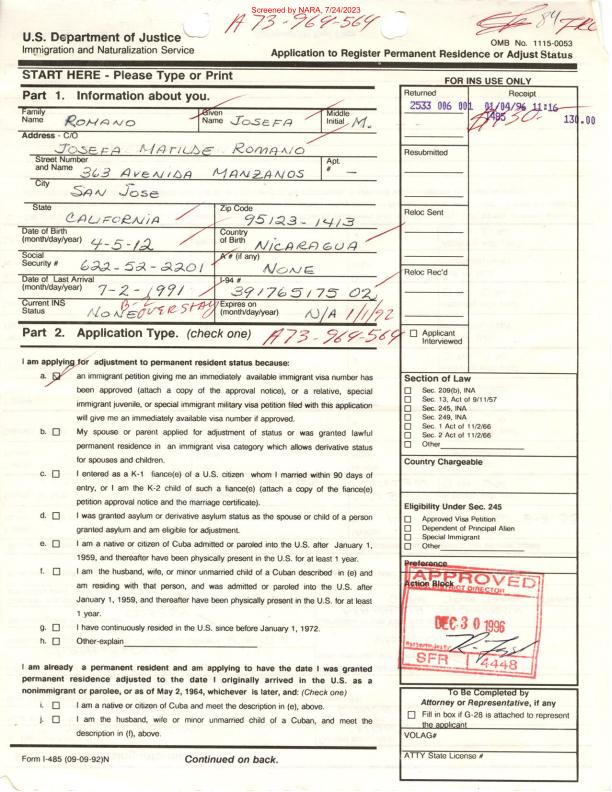 Screened by NARA, 7/24/2023
A 73-969-564
U.S. Department of Justice
Immigration and Naturalization Service
OMB No. 1115-0053
Application to Register Permanent Residence or Adjust Status
START HERE - Please Type or Print
Part 1. Information about you.
Family Name ROMANO
Given Name JOSEFA
Middle Initial M.
Address - C/O
JOSEFA MATILDE ROMANO
Street Number and Name 363 AVENIDA MANZANOS
Apt. # —
City SAN JOSE
State CALIFORNIA
Zip Code 95123-1413
Date of Birth (month/day/year) 4-5-12
Country of Birth NICARAGUA
Social Security # 622-52-2201
A # (if any) NONE
Date of Last Arrival (month/day/year) 7-2-1991
I-94 # 391765175 02
Current INS Status NONE B-2 OVERSTAY
Expires on (month/day/year) N/A 1/1/92
Part 2. Application Type. (check one) A73-969-564
I am applying for adjustment to permanent resident status because:
a. an immigrant petition giving me an immediately available immigrant visa number has
been approved (attach a copy of the approval notice), or a relative, special
immigrant juvenile, or special immigrant military visa petition filed with this application
will give me an immediately available visa number if approved.
b. My spouse or parent applied for adjustment of status or was granted lawful
permanent residence in an immigrant visa category which allows derivative status
for spouses and children.
c. I entered as a K-1 fiance(e) of a U.S. citizen whom I married within 90 days of
entry, or I am the K-2 child of such a fiance(e) (attach a copy of the fiance(e)
petition approval notice and the marriage certificate).
d. I was granted asylum or derivative asylum status as the spouse or child of a person
granted asylum and am eligible for adjustment.
e. I am a native or citizen of Cuba admitted or paroled into the U.S. after January 1,
1959, and thereafter have been physically present in the U.S. for at least 1 year.
f. I am the husband, wife, or minor unmarried child of a Cuban described in (e) and
am residing with that person, and was admitted or paroled into the U.S. after
January 1, 1959, and thereafter have been physically present in the U.S. for at least
1 year.
g. I have continuously resided in the U.S. since before January 1, 1972.
h. Other-explain
I am already a permanent resident and am applying to have the date I was granted
permanent residence adjusted to the date I originally arrived in the U.S. as a
nonimmigrant or parolee, or as of May 2, 1964, whichever is later, and: (Check one)
i. I am a native or citizen of Cuba and meet the description in (e), above.
j. I am the husband, wife or minor unmarried child of a Cuban, and meet the
description in (f), above.
Form I-485 (09-09-92)N
Continued on back.
FOR INS USE ONLY
Returned
Receipt
2533 006 001 01/04/96 11:16
I485
130.00
Resubmitted
Reloc Sent
Reloc Rec'd
Applicant Interviewed
Section of Law
Sec. 209(b), INA
Sec. 13, Act of 9/11/57
Sec. 245, INA
Sec. 249, INA
Sec. 1 Act of 11/2/66
Sec. 2 Act of 11/2/66
Other
Country Chargeable
Eligibility Under Sec. 245
Approved Visa Petition
Dependent of Principal Alien
Special Immigrant
Other
Preference
Action Block
APPROVED
DISTRICT DIRECTOR
DEC 30 1996
SFR 4448
To Be Completed by
Attorney or Representative, if any
Fill in box if G-28 is attached to represent
the applicant
VOLAG#
ATTY State License #